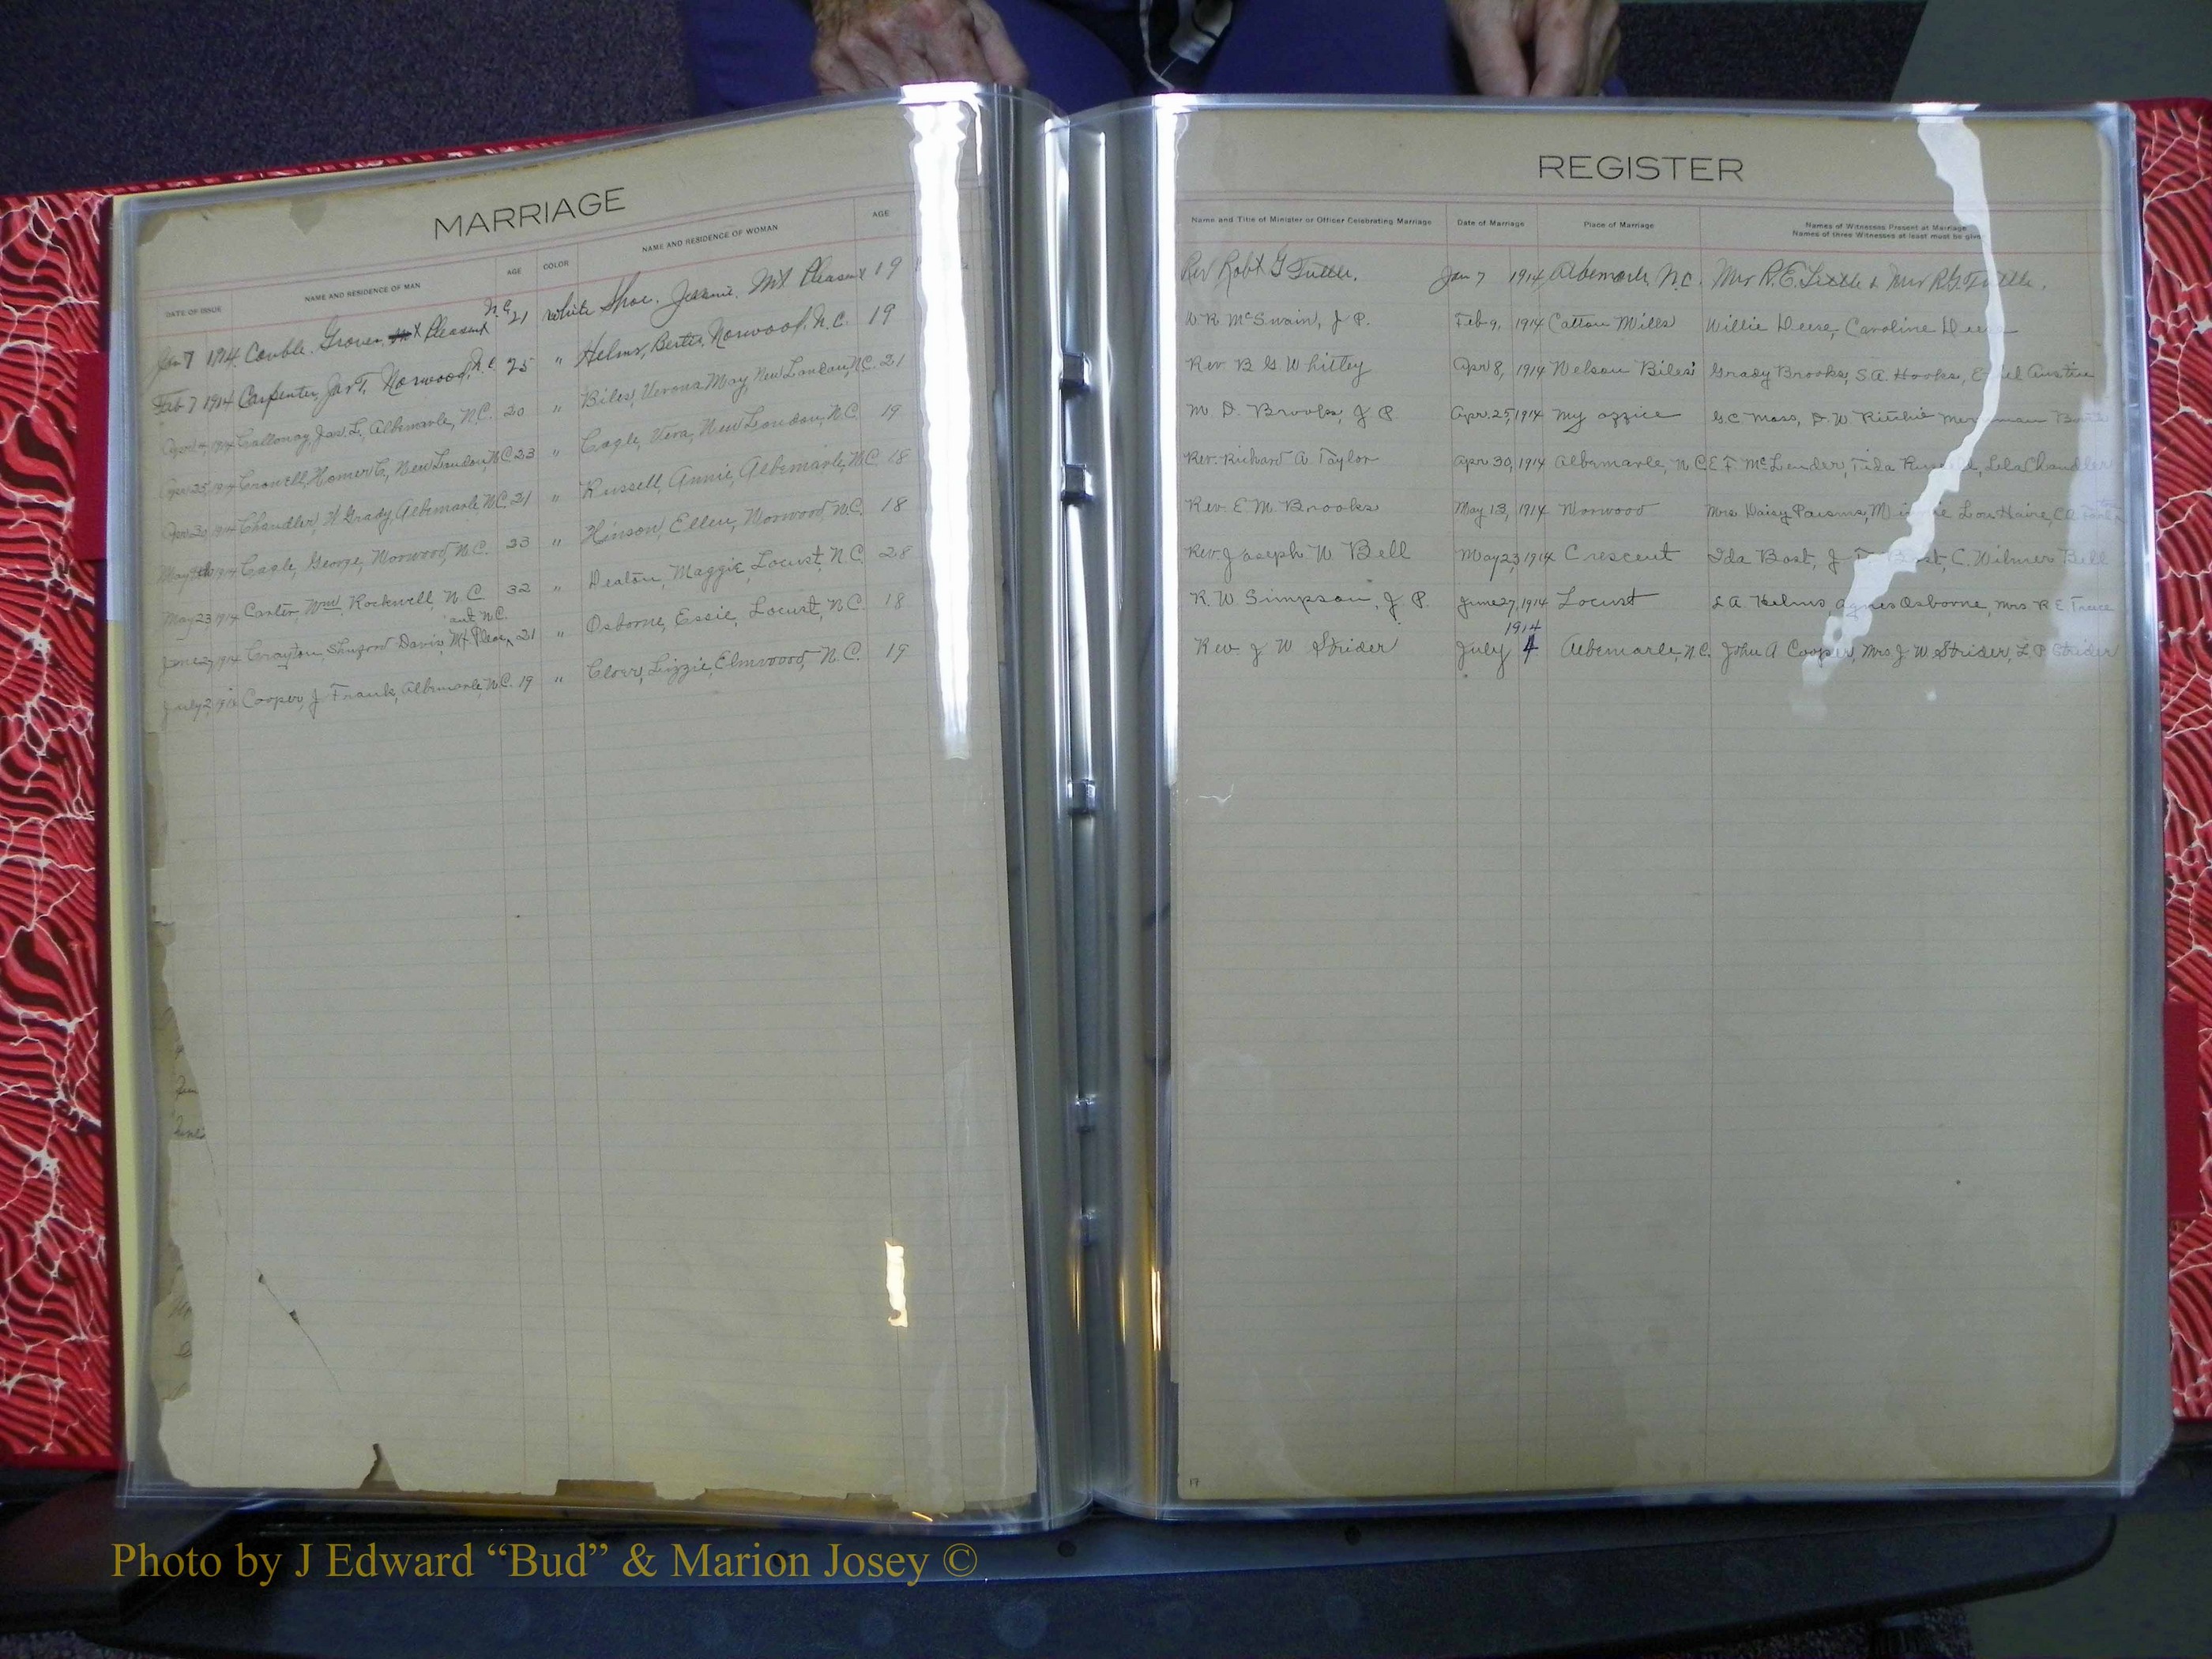 MARRIAGE
DATE OF ISSUE NAME AND RESIDENCE OF MAN AGE COLOR NAME AND RESIDENCE OF WOMAN AGE
Jan 7 1914 Couble, Grover Mt Pleasant N.C. 21 white Shoe, Jennie, Mt Pleasant 19
Feb 7 1914 Carpenter, Jas T, Norwood, N.C 25 " Helms, Bertie, Norwood, N.C. 19
1914 Calloway, Jas. L., Albemarle, N.C. 20 " Biles, Verona May, New London, N.C. 21
Apr 25 1914 Crowell, Homer C, New London, N.C 23 " Cagle, Vera, New London, N.C. 19
Apr 30 1914 Chandler, W Grady Albemarle N.C. 21 " Russell, Annie, Albemarle, N.C. 18
May 1914 Cagle, George, Norwood, N.C. 23 " Hinson, Ellen, Norwood, N.C. 18
May 23 1914 Carter, Wm, Rockwell, N.C. 32 " Deaton, Maggie, Locust, N.C. 28
June 27 1914 Crayton, Shuford Davis, Mt. Pleasant N.C. 21 " Osborne, Essie, Locust, N.C. 18
July 2 Cooper, J Frank, Albemarle, N.C. 19 " Clover, Lizzie, Elmwood, N.C. 19
REGISTER
Name and Title of Minister or Officer Celebrating Marriage Date of Marriage Place of Marriage Names of Witnesses Present at Marriage
Names of three Witnesses at least must be given
Rev Robt G Tuttle. Jan 7 1914 Albemarle, N.C. Mrs R.E. Little & Mrs R.G. Tuttle.
W R McSwain, J P. Feb 9, 1914 Cotton Mills Willie Deese, Caroline Deese
Rev. B G Whitley Apr 8, 1914 Nelson Biles' Grady Brooks, S.A. Hooks, Ethel Austin
M D. Brooks, J P Apr. 25, 1914 My office G.C. Moss, D. W Ritchie
Rev. Richard A Taylor Apr 30, 1914 Albemarle, N.C. E F McLendon, Tida Russell, Lela Chandler
Rev. E. M. Brooks May 13, 1914 Norwood Mrs Daisy Parsons, Minnie Lou Haire,
Rev. Joseph W Bell May 23, 1914 Crescent Ida Bost, J Bost, C. Wilmer Bell
R. W Simpson, J P. June 27, 1914 Locust L A. Helms, Agnes Osborne, Mrs. R E
Rev J W Strider July 4 1914 Albemarle, N.C. John A Cooper, Mrs J W Strider, L P Strider
17
Photo by J Edward “Bud” & Marion Josey ©